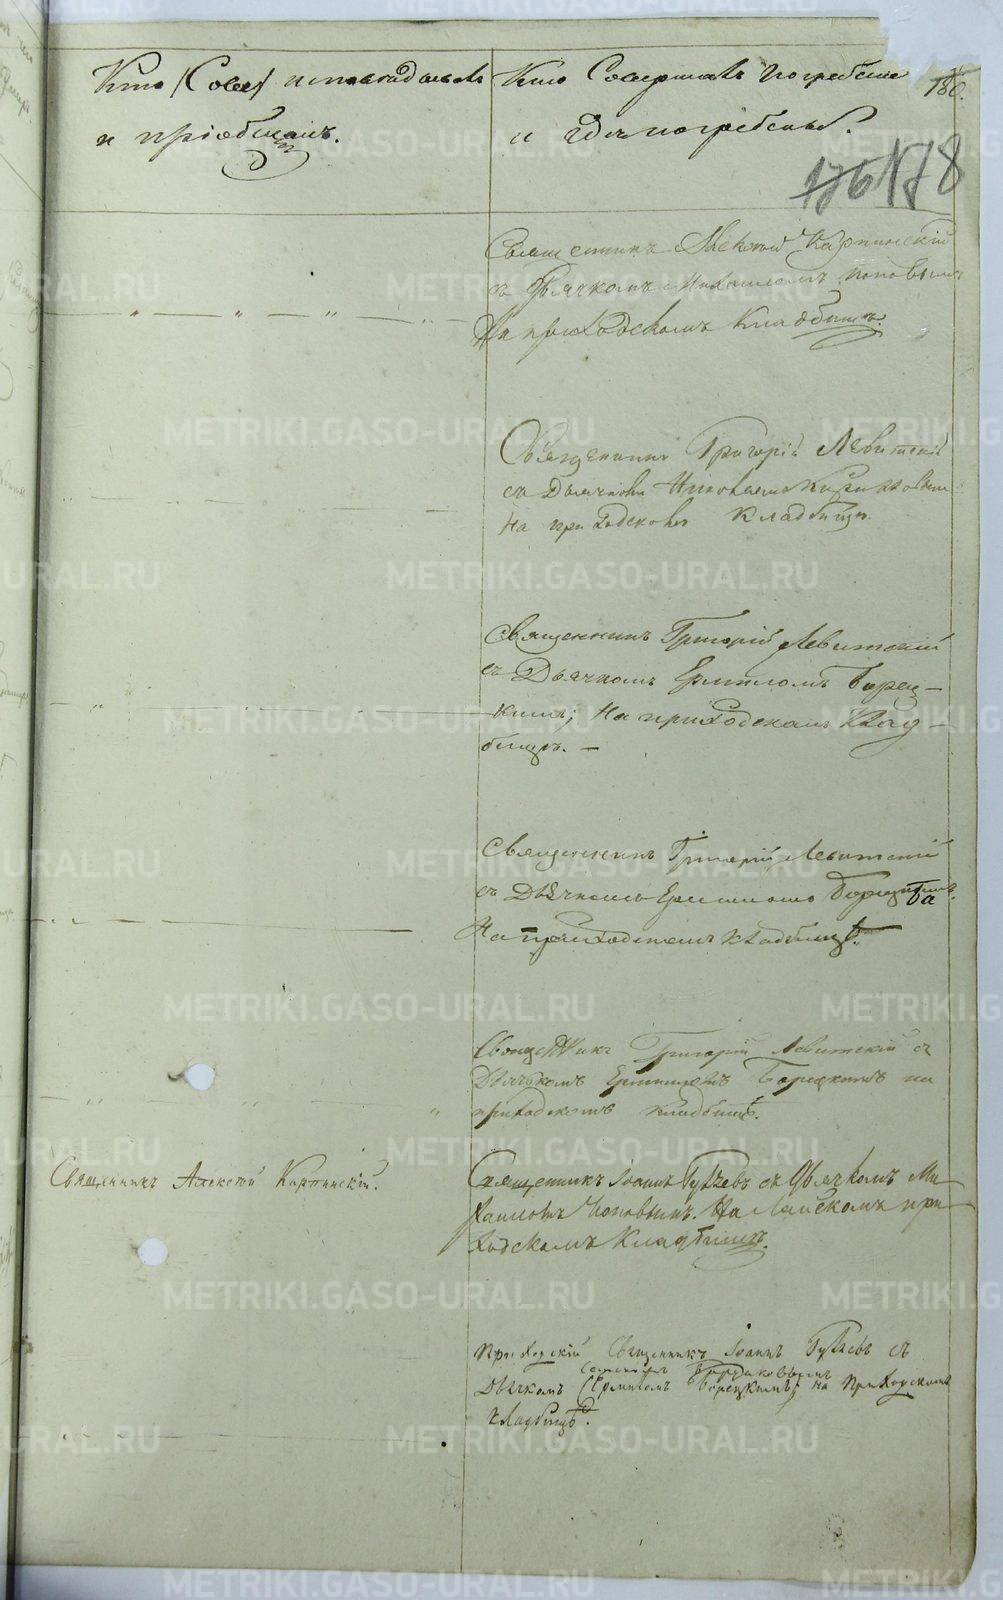 180.
Кто исповѣдывалъ
и пріобщалъ.
Кто Совершалъ погребеніе
и гдѣ погребены.
176 178
Священникъ Алексѣй Карпинскій
съ Дьячкомъ Михаиломъ Поповымъ
На приходскомъ Кладбищѣ.
Священникъ Григорій Левитскій
съ Дьячкомъ Николаемъ
На приходскомъ Кладбищѣ.
Священникъ Григорій Левитскій
съ Дьячкомъ Ермиломъ Борец-
кимъ; На приходскомъ Клад-
бищѣ. -
Священникъ Григорій Левитскій
съ Дьячкомъ Ермиломъ
На приходскомъ кладбищѣ.
Священникъ Григорій Левитскій съ
Дьячкомъ Ермиломъ Борецкимъ на
приходскомъ кладбищѣ.
Священникъ Алексѣй Карпинскій.
Священникъ Іоаннъ съ Дьячкомъ Ми-
хаиломъ Поповымъ. На Лайскомъ при-
ходскомъ Кладбищѣ.
Приходскій Священникъ Іоаннъ съ
Дьячкомъ (Ермиломъ Борецкимъ) на Приходскомъ
кладбищѣ.
METRIKI.GASO-URAL.RU